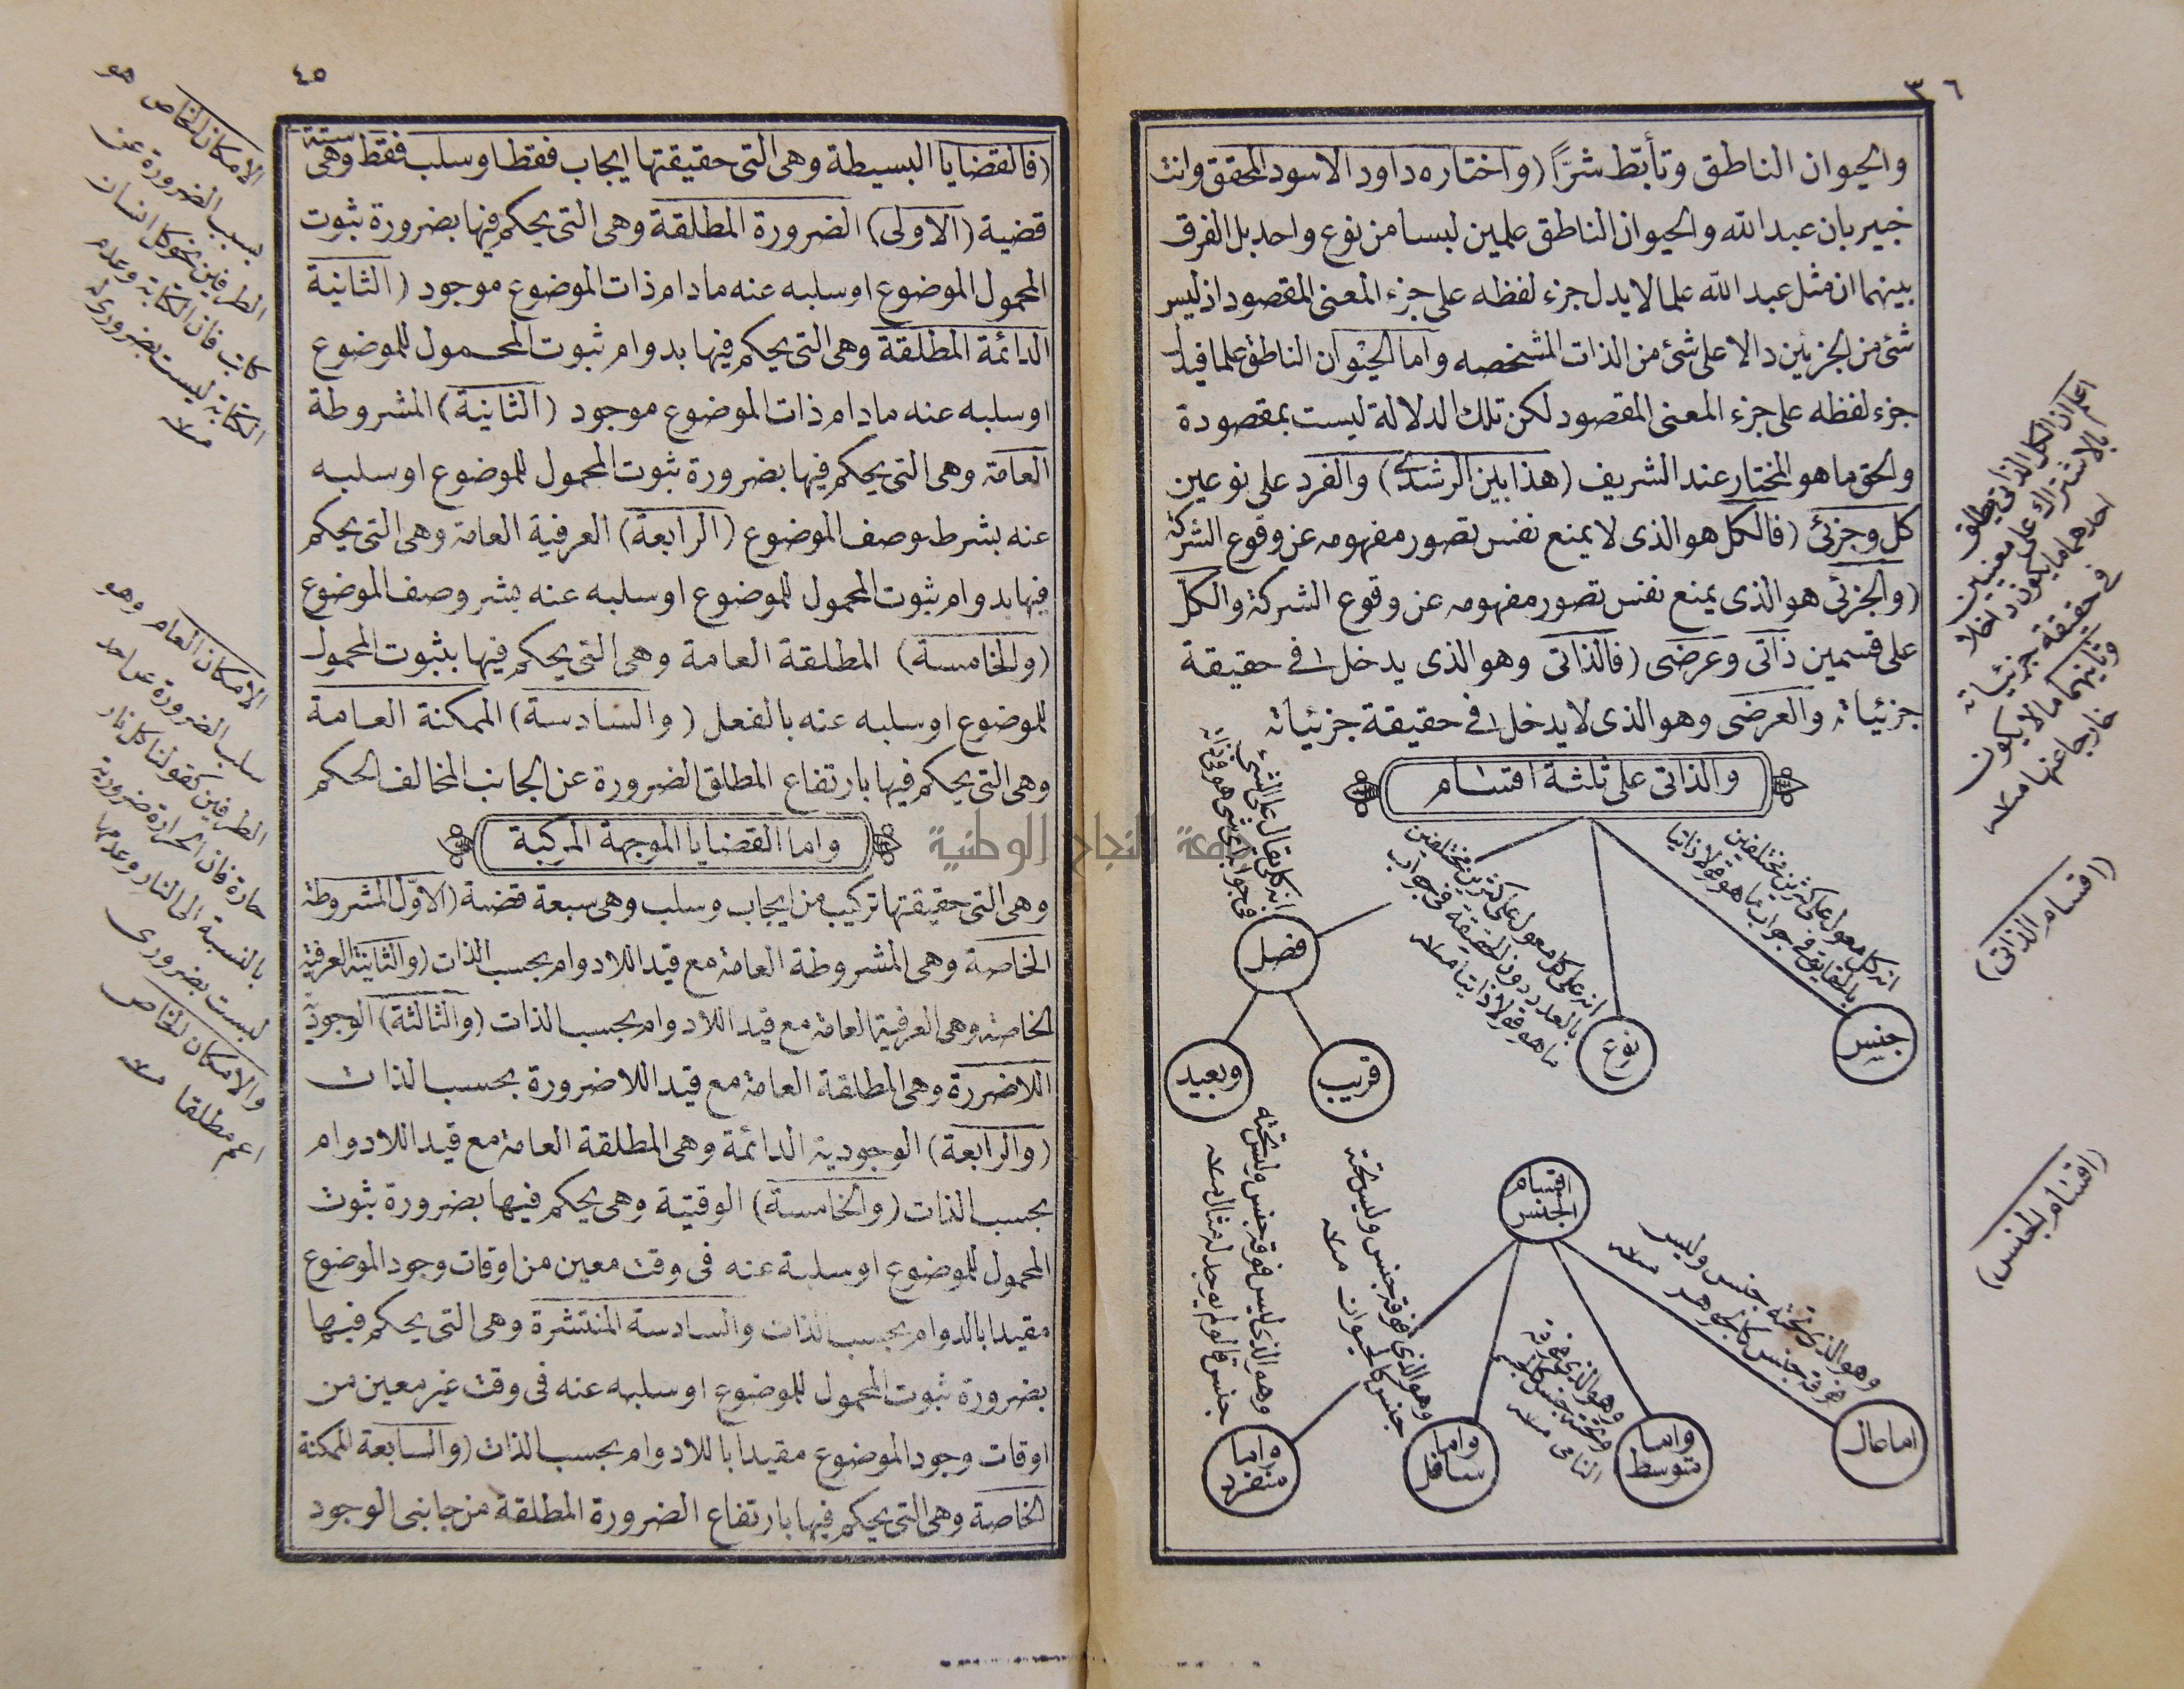 ٣٦
والحيوان الناطق وتأبّط شرّاً (واختاره داود الاسود المحقق وانت
خبير بان عبد الله والحيوان الناطق علمين ليسا من نوع واحد بل الفرق
بينهما ان مثل عبد الله علما لا يدل جزء لفظه على جزء المعنى المقصود اذ ليس
شئ من الجزئين دالا على شئ من الذات المشخصه واما الحيوان الناطق علما فيدل
جزء لفظه على جزء المعنى المقصود لكن تلك الدلالة ليست بمقصودة
والحق ما هو المختار عند الشريف (هذا بين الرشدى) والفرد على نوعين
كلى وجزئى (فالكلى هو الذى لا يمنع نفس تصور مفهومه عن وقوع الشركة
(والجزئى هو الذى يمنع نفس تصور مفهومه عن وقوع الشركة والكلى
على قسمين ذاتى وعرضى (فالذاتى وهو الذى يدخل فى حقيقة
جزئياته والعرضى وهو الذى لا يدخل فى حقيقة جزئياته
والذاتى على ثلثة اقسام
جنس
نوع
فصل
قريب
وبعيد
اقسام الجنس
اما عال
واما متوسط
واما سافل
واما منفرد
وهو الذى تحته جنس وليس
فوقه جنس كالجوهر منه
وهو الذى فوقه جنس وليس تحته
جنس كالحيوان منه
وهو الذى ليس فوقه جنس وليس تحته
جنس قالوا لم يوجد له مثال منه
اعلم ان الكلى الذاتى يطلق
بالاشتراك على معنيين
احدهما ما يكون داخلا
فى حقيقة جزئياته
وثانيهما ما لا يكون
خارجا عنها منه
(اقسام الذاتى)
(اقسام الجنس)
٤٥
(فالقضايا البسيطة وهى التى حقيقتها ايجاب فقط او سلب فقط وهى ستة
قضية (الاولى) الضرورة المطلقة وهى التى يحكم فيها بضرورة ثبوت
المحمول الموضوع او سلبه عنه مادام ذات الموضوع موجود (الثانية
الدائمة المطلقة وهى التى يحكم فيها بدوام ثبوت المحمول للموضوع
او سلبه عنه مادام ذات الموضوع موجود (الثانية) المشروطة
العامة وهى التى يحكم فيها بضرورة ثبوت المحمول للموضوع او سلبه
عنه بشرط وصف الموضوع (الرابعة) العرفية العامة وهى التى يحكم
فيها بدوام ثبوت المحمول للموضوع او سلبه عنه بشر وصف الموضوع
(والخامسة) المطلقة العامة وهى التى يحكم فيها بثبوت المحمول
للموضوع او سلبه عنه بالفعل (والسادسة) الممكنة العامة
وهى التى يحكم فيها بارتفاع المطلق الضرورة عن الجانب المخالف الحكم
واما القضايا الموجهة المركبة
وهى التى حقيقتها تركيب من ايجاب وسلب وهى سبعة قضية (الاوّل المشروطة
الخاصة وهى المشروطة العامة مع قيد اللادوام بحسب الذات (والثانية العرفية
الخاصة وهى العرفية العامة مع قيد اللادوام بحسب الذات (والثالثة) الوجودية
اللاضررة وهى المطلقة العامة مع قيد اللاضرورة بحسب الذات
(والرابعة) الوجودية الدائمة وهى المطلقة العامة مع قيد اللادوام
بحسب الذات (والخامسة) الوقتية وهى يحكم فيها بضرورة ثبوت
المحمول للموضوع او سلبة عنه فى وقت معين من اوقات وجود الموضوع
مقيدا بالدوام بحسب الذات والسادسة المنتشرة وهى التى يحكم فيها
بضرورة ثبوت المحمول للموضوع او سلبه عنه فى وقت غير معين من
اوقات وجود الموضوع مقيدا باللادوام بحسب الذات (والسابعة الممكنة
الخاصة وهى التى يحكم فيها بارتفاع الضرورة المطلقة من جانبى الوجود
الامكان الخاص هو
سبب الضرورة عن
الطرفين نحو كل انسان
كاتب فان الكتابة وعدم
الكتابة ليست بضرورى له
منه
الامكان العام وهو
سلب الضرورة عن احد
الطرفين كقولنا كل نار
حارة فان الحرارة ضرورية
بالنسبة الى النار وعدمها
ليست بضرورى
والامكان الخاص
اعم مطلقا منه
جامعة النجاح الوطنية